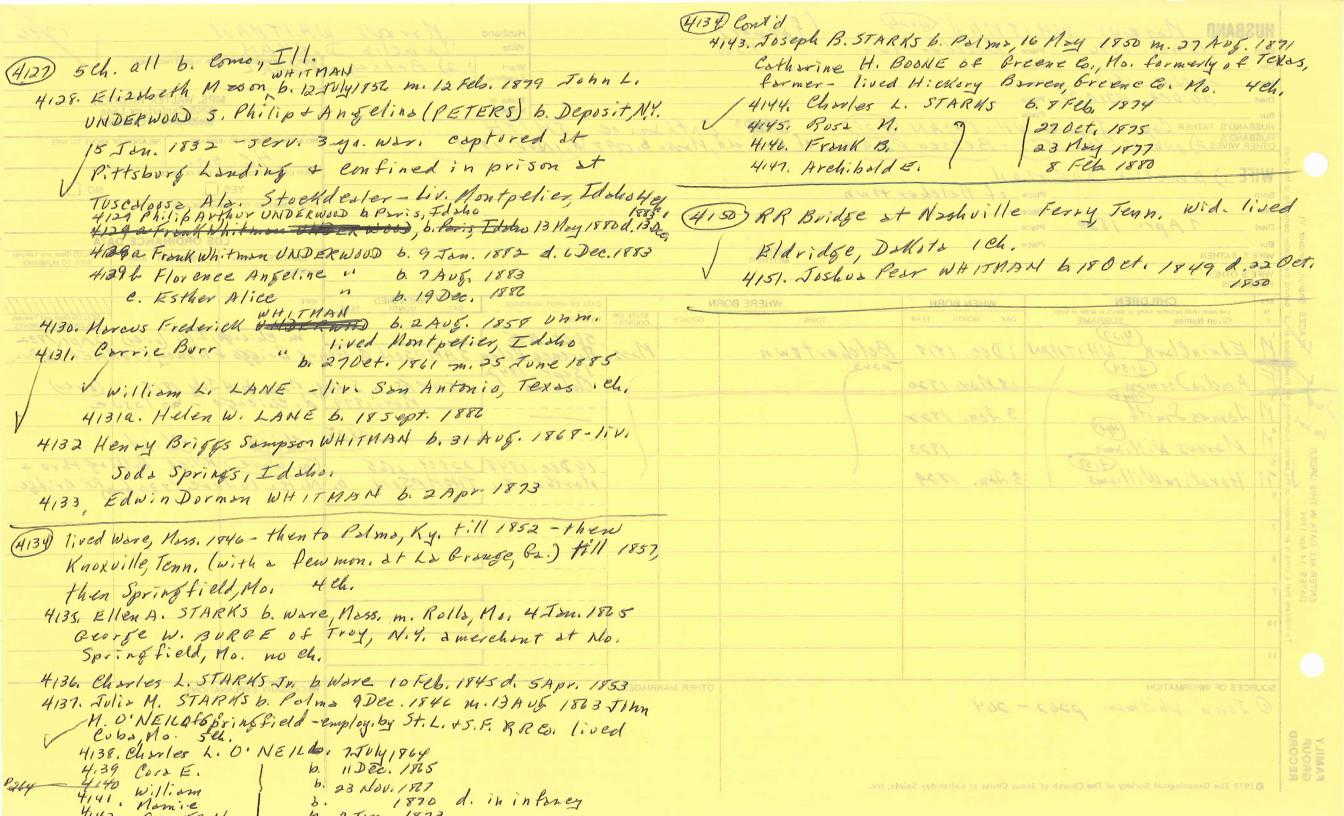 4127 5ch. all b. Como, Ill.
WHITMAN
4128. Elizabeth b. 12 July 1856 m. 12 Feb. 1879 John L.
UNDERWOOD s. Philip & Angelina (PETERS) b. Deposit, N.Y.
15 Jan. 1832 - serv. 3 ya. war. captured at
Pittsburg Landing & confined in prison at
Tuscaloosa, Ala. Stockdealer - liv. Montpelier, Idaho 4ch.
4129 Philip Arthur UNDERWOOD b Paris, Idaho
4129a Frank Whitman UNDERWOOD, b. Paris, Idaho 13 May 1880 d. 13 Dec. 1885
4129a Frank Whitman UNDERWOOD b. 9 Jan. 1882 d. 6 Dec. 1883
4129b Florence Angeline " b. 7 Aug. 1883
c. Esther Alice " b. 19 Dec. 1886
WHITMAN
4130. Marcus Frederick UNDERWOOD b. 2 Aug. 1858 unm.
lived Montpelier, Idaho
4131. Carrie Burr " b. 27 Oct. 1861 m. 25 June 1885
William L. LANE - liv. San Antonio, Texas. ch.
4131a. Helen W. LANE b. 18 Sept. 1886
4132 Henry Briggs Sampson WHITMAN b. 31 Aug. 1868 - liv.
Soda Springs, Idaho.
4133, Edwin Dorman WHITMAN b. 2 Apr. 1873
4134 lived Ware, Mass. 1846 - then to Palma, Ky. till 1852 - then
Knoxville, Tenn. (with a few mon. at La Grange, Ga.) till 1857,
then Springfield, Mo. 4ch.
4135. Ellen A. STARKS b. Ware, Mass. m. Rolla, Mo. 4 Jan. 1865
George W. BURGE of Troy, N.Y. a merchant at No.
Springfield, Mo. no ch.
4136. Charles L. STARKS Jr. b Ware 10 Feb. 1845 d. 5 Apr. 1853
4137. Julia M. STARKS b. Palma 9 Dec. 1846 m. 13 Aug 1863 John
M. O'NEIL of Springfield - employ. by St. L. & S.F. RR Co. lived
Cuba, Mo. 5ch.
4138. Charles L. O'NEIL b. 7 July 1864
4139 Cora E. b. 11 Dec. 1865
P264 4140 William b. 23 Nov. 1867
4141. Mamie b. 1870 d. in infancy
4134 Cont'd
4143. Joseph B. STARKS b. Palma, 16 May 1850 m. 27 Aug. 1871
Catharine H. BOONE of Greene Co., Mo. formerly of Texas,
farmer - lived Hickory Barren, Greene Co. Mo. 4ch.
4144. Charles L. STARKS b. 8 Feb. 1874
4145. Rosa M. 27 Oct. 1875
4146. Frank B. 23 May 1877
4147. Archibald E. 8 Feb 1880
4150 RR Bridge at Nashville Ferry Tenn. Wid. lived
Eldridge, Dakota 1ch.
4151. Joshua Pear WHITMAN b. 18 Oct. 1849 d. 22 Oct.
1850